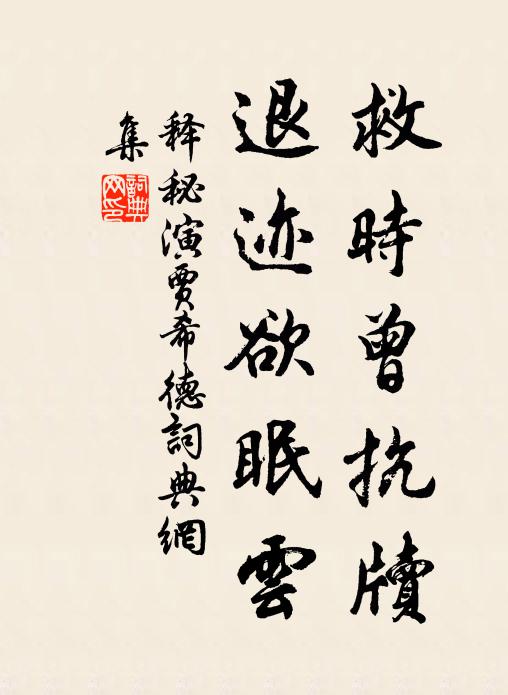 救時曾抗牘
退迹欲眠雲
释秘演賈希德詞典網
集
詞典网印